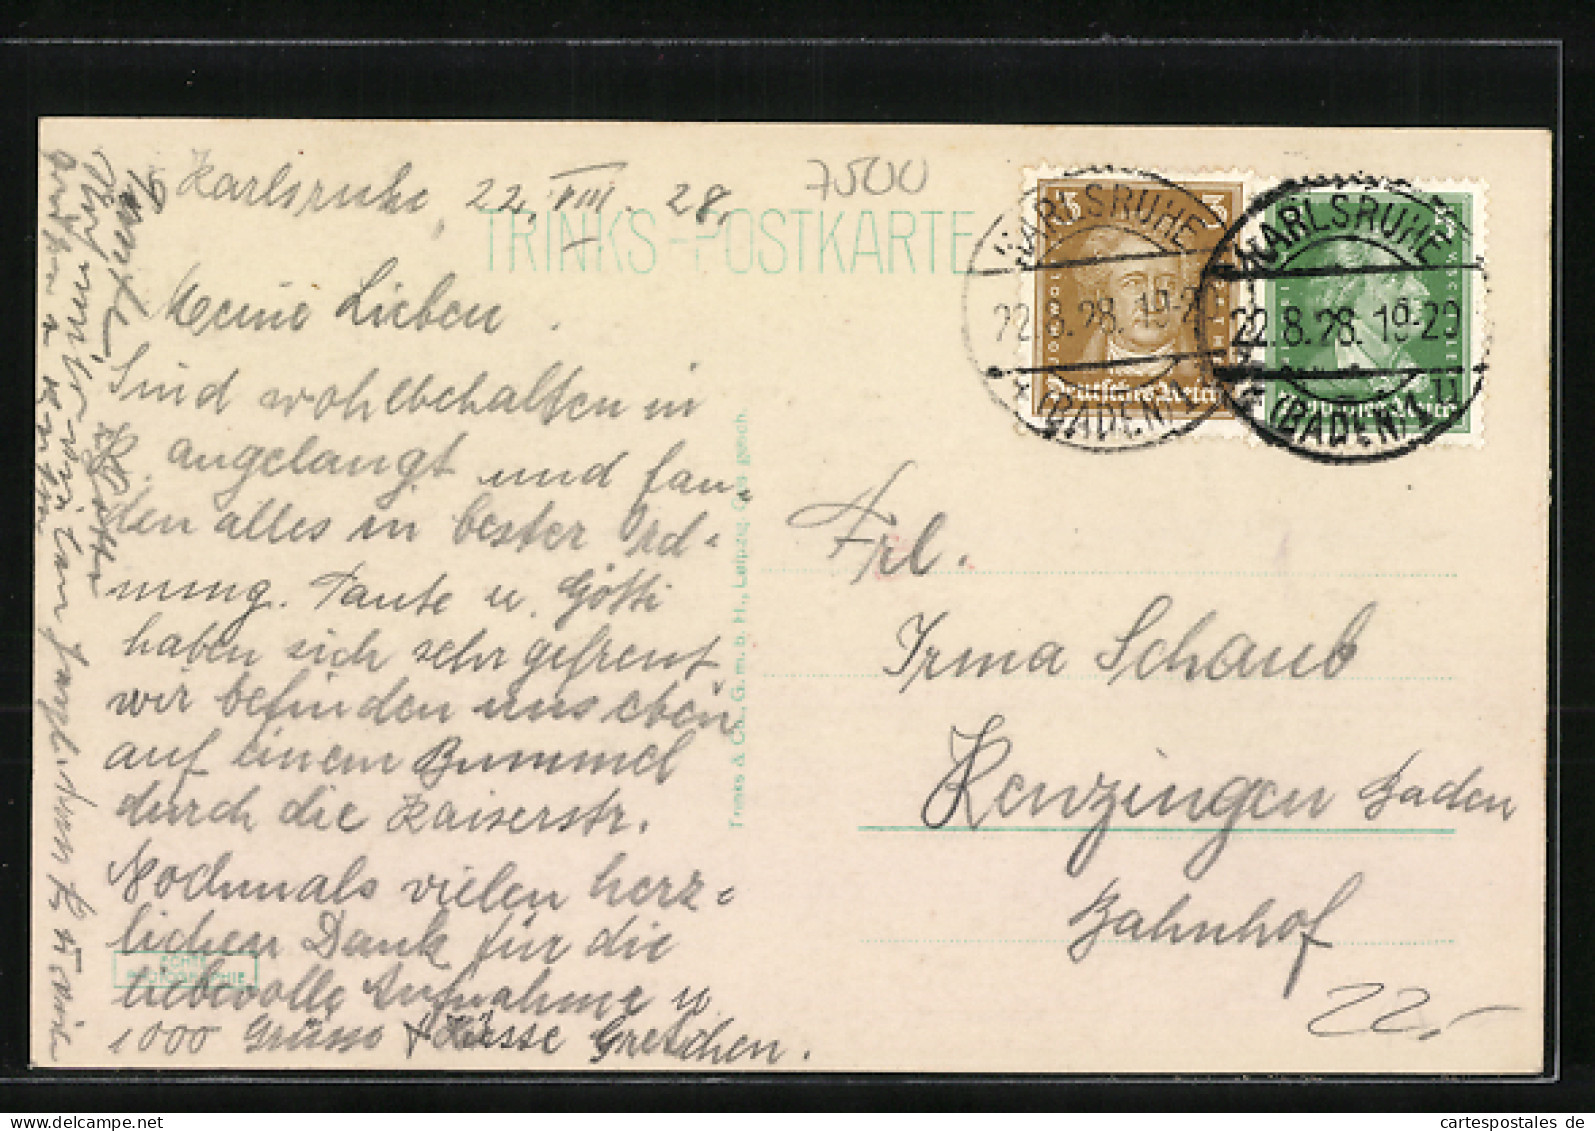 7500
Karlsruhe, 22. VIII. 28.
TRINKS-POSTKARTE
Meine Lieben.
Sind wohlbehalten in
K. angelangt und fan-
den alles in bester Ord-
nung. Tante u. Götti
haben sich sehr gefreut
wir befinden uns eben
auf einem Bummel
durch die Kaiserstr.
Nochmals vielen herz-
lichen Dank für die
liebevolle Aufnahme u.
1000 Grüsse + Küsse Gretchen.
ECHTE
PHOTOGRAPHIE
Trinks & Co., G. m. b. H., Leipzig. Ges. gesch.
KARLSRUHE
22.8.28. 19-20
(BADEN) 1
Deutsches Reich
3
KARLSRUHE
22.8.28. 19-20
(BADEN) 1
5
Frl.
Irma Schaub
Kenzingen Baden
Bahnhof
22,-
cartespostales de